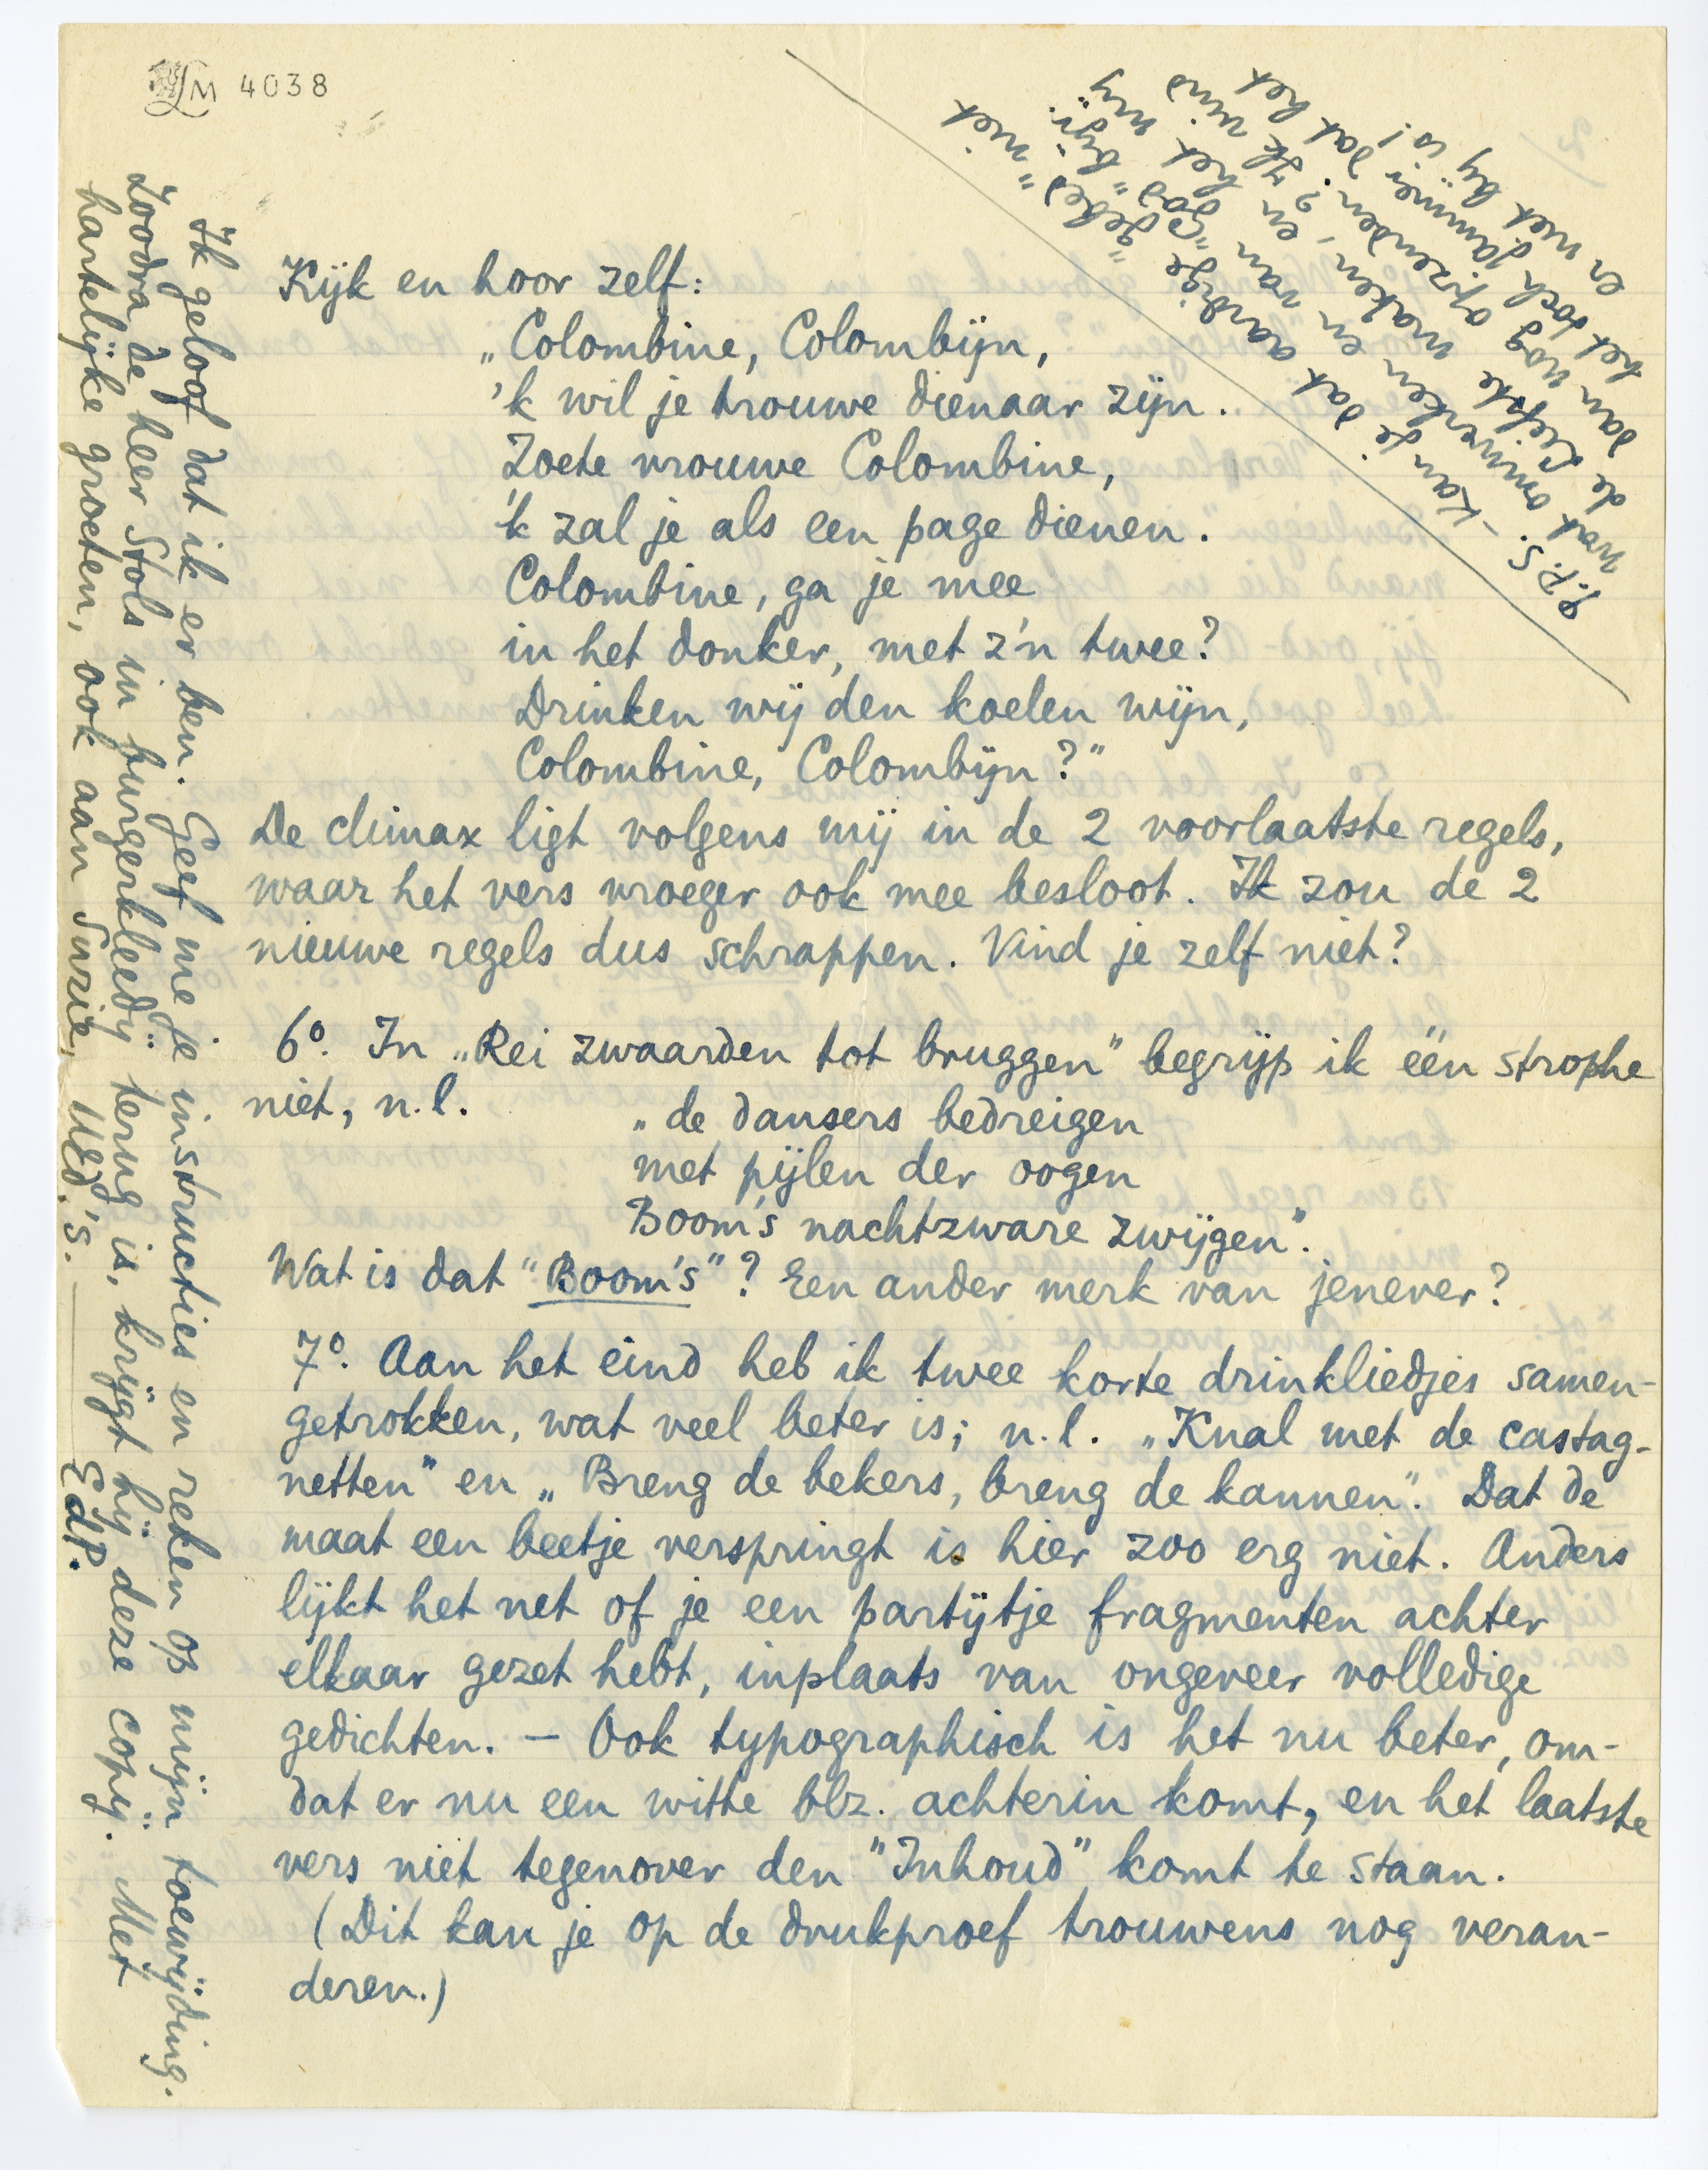 LM 4038
Kijk en hoor zelf:
„Colombine, Colombijn,
'k wil je trouwe dienaar zijn.
Zoete vrouwe Colombine,
'k zal je als een page dienen.
Colombine, ga je mee
in het donker, met z'n twee?
Drinken wij den koelen wijn,
Colombine, Colombijn?"
De climax ligt volgens mij in de 2 voorlaatste regels,
waar het vers vroeger ook mee besloot. Ik zou de 2
nieuwe regels dus schrappen. Vind je zelf niet?
6º. In „Rei zwaarden tot bruggen" begrijp ik één strophe
niet, n.l.
„de dansers bedreigen
met pijlen der oogen
Boom's nachtzware zwijgen".
Wat is dat "Boom's"? Een ander merk van jenever?
7º. Aan het eind heb ik twee korte drinkliedjes samen-
getrokken, wat veel beter is; n.l. „Knal met de castag-
netten" en „Breng de bekers, breng de kannen". Dat de
maat een beetje verspringt is hier zoo erg niet. Anders
lijkt het net of je een partijtje fragmenten achter
elkaar gezet hebt, inplaats van ongeveer volledige
gedichten. — Ook typographisch is het nu beter, om-
dat er nu een witte blz. achterin komt, en het laatste
vers niet tegenover den "Inhoud" komt te staan.
(Dit kan je op de drukproef trouwens nog veran-
deren.)
Ik geloof dat ik er ben. Geef me je instructies en reken op mijn toewijding.
Zoodra de heer Stols in burgerkleedij terug is, krijgt hij deze copij. Met
hartelijke groeten, ook aan Suzie, UEd.'s. EdP.
P.S. - Kan je dat aardige "gebed" niet
wat omwerken en van "God" bijv.
de Liefste maken, en het mij
dan nog opzenden? Ik vind
het toch jammer dat het
er niet bij is!